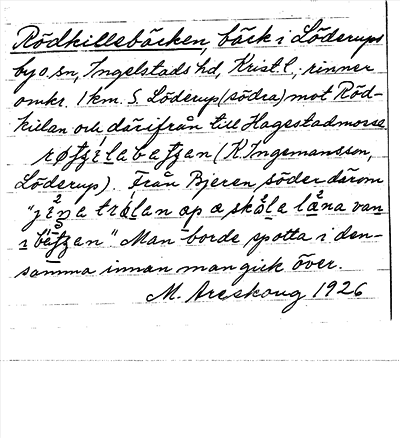 Rödkillebäcken, bäck i Löderups
by o. sn, Ingelstads hd, Krist. l., rinner
omkr. 1 km. S. Löderup (södra) mot Röd-
killan och därifrån till Hagestadmosse
(K. Ingemansson,
Löderup). Från Bjeren söder därom
"
" Man borde spotta i den-
samma innan man gick över.
M. Areskoug 1926